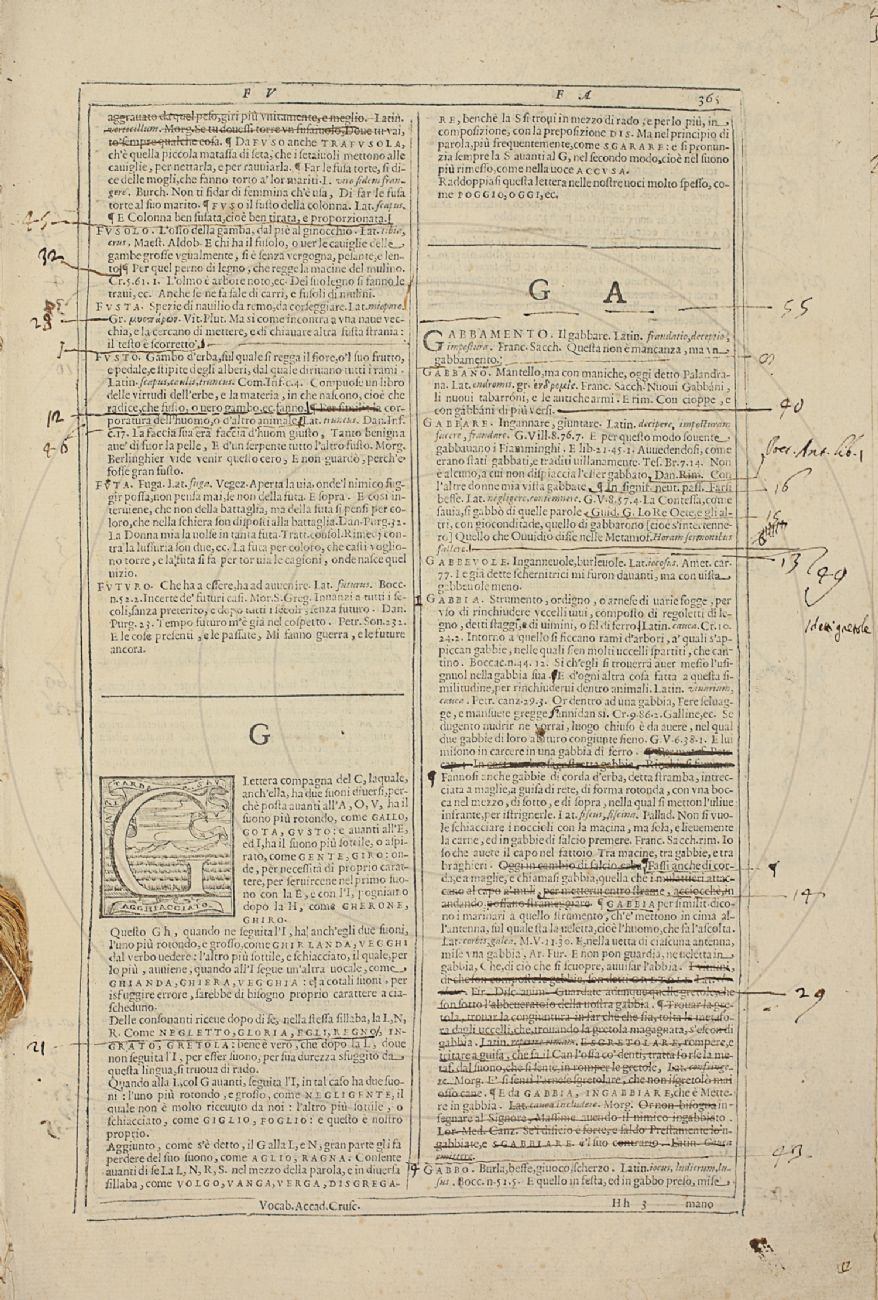 F V
F A
365
aggrauato da quel peso, giri più vnitamente, e meglio. Latin.
verticillum. Morg. Se tu douessi torre vn fusaiuolo, Doue tu vai,
to' sempre qualche cosa. ¶ Da FVSO anche TRAFVSOLA,
ch'è quella piccola matassa di seta, che i setaiuoli mettono alle
cauiglie, per nettarla, e per rauuiarla. ¶ Far le fusa torte, si di-
ce delle mogli, che fanno torto a' lor mariti. L.
Burch. Non ti fidar di femmina ch'è usa, Di far le fusa
torte al suo marito. ¶ FVSO il fusto della colonna. Lat. scapus.
¶ E Colonna ben fusata, cioè ben tirata, e proporzionata.
FVSOLO. L'osso della gamba, dal piè al ginocchio. Lat. tibia,
crus. Maest. Aldob. E chi ha il fusolo, o uer le cauiglie delle
gambe grosse vgualmente, si è senza vergogna, pesante, e len-
to ¶ Per quel perno di legno, che regge la macine del mulino.
Cr. 5. 61. 1. L'olmo è arbore noto, ec. Del suo legno si fanno le
traui, ec. Anche se ne fa sale di carri, e fusoli di mulini.
FVSTA. Spezie di nauilio da remo, da corseggiare. Lat. miopare.
Gr. μυοπάρων. Vit. Plut. Ma sì come incontra a vna naue vec-
chia, e la cercano di mettere, e di chiauare altra fusta strania:
il testo è scorretto.
FVSTO. Gambo d'erba, sul quale si regga il fiore, o'l suo frutto,
e pedale, e stipite degli alberi, dal quale diriuano tutti i rami.
Latin. scapus, caulis, truncus. Com. Inf. c. 4. Compuose un libro
delle virtudi dell'erbe, e la materia, in che nascono, cioè che
radice, che fusto, o uero gambo, ec. fanno. ¶ Per similit. la cor-
poratura dell'huomo, o d'altro animale. Lat. truncus. Dan. Inf.
c. 17. La faccia sua era faccia d'huom giusto, Tanto benigna
aue' di fuor la pelle, E d'un serpente tutto l'altro fusto. Morg.
Berlinghier vide venir questo cero, E non guardò, perch'e'
fosse gran fusto.
FVTA. Fuga. Lat. fuga. Vegez. Aperta la uia, onde'l nimico fug-
gir possa, non pensa mai, se non della futa. E sopra. E così in-
teruiene, che non della battaglia, ma della futa si pensi per co-
loro, che nella schiera son disposti alla battaglia. Dan. Purg. 32.
La Donna mia la uolse in tanta futa. Tratt. consol. Rimedj con-
tra la lussuria son due, ec. La futa per coloro, che casti voglio-
no torre, e la futa si fa per tor uia le cagioni, onde nasce quel
uizio.
FVTVRO. Che ha a essere, ha ad auuenire. Lat. futurus. Bocc.
n. 52. 2. Incerte de' futuri casi. Mor. S. Greg. Innanzi a tutti i se-
coli, sanza preterito, e dopo tutti i secoli, senza futuro. Dan.
Purg. 23. Tempo futuro m'è già nel cospetto. Petr. Son. 232.
E le cose presenti, e le passate, Mi fanno guerra, e le future
ancora.
G
AGGHIACCIATO
Lettera compagna del C, laquale,
anch'ella, ha due suoni diuersi, per-
chè posta auanti all'A, O, V, ha il
suono più rotondo, come GALLO,
GOTA, GVSTO: e auanti all'E,
ed I, ha il suono più sottile, o aspi-
rato, come GENTE, GIRO: on-
de, per necessità di proprio carat-
tere, per seruircene nel primo suo-
no con la E, e con l'I, pogniamo
dopo la H, come GHERONE,
GHIRO.
Questo Gh, quando ne seguita l'I, ha anch'egli due suoni,
l'uno più rotondo, e grosso, come GHIRLANDA, VEGGHI
dal verbo uedere: l'altro più sottile, e schiacciato, il quale, per
lo più, auuiene, quando all'I segue un'altra uocale, come
GHIANDA, GHIERA, VEGGHIA: e a cotali suoni, per
isfuggire errore, sarebbe di bisogno proprio carattere a cia-
scheduno.
Delle consonanti riceue dopo di se, nella stessa sillaba, la L, N,
R. Come NEGLETTO, GLORIA, EGLI, REGNO, IN-
GRATO, GRETOLA: bene è vero, che dopo la L, doue
non seguita l'I, per esser suono, per sua durezza sfuggito da
questa lingua, si truoua di rado.
Quando alla L, col G auanti, seguita l'I, in tal caso ha due suo-
ni: l'uno più rotondo, e grosso, come NEGLIGENTE, il
quale non è molto riceuuto da noi: l'altro più sottile, o
schiacciato, come GIGLIO, FOGLIO: e questo è nostro
proprio.
Aggiunto, come s'è detto, il G alla L, e N, gran parte gli fa
perdere del suo suono, come AGLIO, RAGNA. Consente
auanti di se la L, N, R, S. nel mezzo della parola, e in diuersa
sillaba, come VOLGO, VANGA, VERGA, DISGREGA-
Vocab. Accad. Crusc.
RE, benchè la S si troui in mezzo di rado, e per lo più, in
composizione, con la preposizione DIS. Ma nel principio di
parola, più frequentemente, come SGARARE: e si pronun-
zia sempre la S auanti al G, nel secondo modo, cioè nel suono
più rimesso, come nella uoce ACCVSA.
Raddoppiasi questa lettera nelle nostre uoci molto spesso, co-
me POGGIO, OGGI, ec.
G A
GABBAMENTO. Il gabbare. Latin. fraudatio, deceptio,
impostura. Franc. Sacch. Questa non è mancanza, ma vn
gabbamento.
GABBANO. Mantello, ma con maniche, oggi detto Palandra-
na. Lat. endromis. gr. Franc. Sacch. Nuoui Gabbani,
li nuoui tabarroni, e le antiche armi. E rim. Con cioppe, e
con gabbani di più versi.
GABBARE. Ingannare, giuntare. Latin. decipere, imposturam
facere, fraudare. G. Vill. 8. 76. 7. E per questo modo souente
gabbauano i Fiamminghi. E lib. 21. 45. 1. Auuedendosi, come
erano stati gabbati, e traditi uillanamente. Tes. Br. 7. 14. Non
è alcuno, a cui non dispiaccia l'esser gabbato. Dan. Rim. Con
l'altre donne mia vista gabbate. ¶ In signif. neut. pass. Farsi
beffe. Lat. negligere, contemnere. G. V. 8. 57. 4. La Contessa, come
sauia, si gabbò di quelle parole. Guid. G. Lo Re Oete, e gli al-
tri, con gioconditade, quello di gabbarono [cioè s'intertenne-
ro] Quello che Ouuidio disse nelle Metamof. Horam sermonibus
fallere.
GABBEVOLE. Ingannevole, burleuole. Lat. iocosus. Amet. car.
77. Le già dette schernitrici mi furon dauanti, ma con uista
gabbeuole meno.
GABBIA. Strumento, ordigno, o arnese di uarie fogge, per
vso di rinchiudere vccelli uiui, composto di regoletti di le-
gno, detti staggi, e di uimini, o fil di ferro. Latin. cauea. Cr. 10.
24. 2. Intorno a quello si ficcano rami d'arbori, a' quali s'ap-
piccan gabbie, nelle quali sien molti uccelli spartiti, che can-
tino. Boccac. n. 44. 12. Sì ch'egli si trouerrà auer messo l'usi-
gnuol nella gabbia sua. ¶ E d'ogni altra cosa fatta a questa si-
militudine, per rinchiuderui dentro animali. Latin. viuarium,
cauea. Petr. canz. 29. 3. Or dentro ad una gabbia, Fere seluag-
ge, e mansuete gregge s'annidan sì. Cr. 9. 86. 2. Galline, ec. Se
dugento nudrir ne vorrai, luogo chiuso è da auere, nel qual
due gabbie di loro abituro congiunte sieno. G. V. 6. 38. 1. E lui
misono in carcere in una gabbia di ferro.
¶ Fannosi anche gabbie di corda d'erba, detta stramba, intrec-
ciata a maglie, a guisa di rete, di forma rotonda, con vna boc-
ca nel mezzo, di sotto, e di sopra, nella qual si metton l'uliue
infrante, per istrignerle. Lat. fiscus, fiscina. Pallad. Non si vuo-
le schiacciare i noccioli con la macina, ma sela, e lieuemente
la carne, ed in gabbie di salcio premere. Franc. Sacch. rim. Io
so che auere il capo nel fattoio. Tra macine, tra gabbie, e tra
braghieri. Fassi anche di cor-
da, e a maglie, e chiamasi gabbia, quella che i mulattieri attac-
cano al capo a' muli, per metterui entro strame, acciocchè, in
andando, possano strameggiare. ¶ GABBIA per similit. dico-
no i marinari a quello strumento, ch'e' mettono in cima al-
l'antenna, sul qual sta la ueletta, cioè l'huomo, che fa l'ascolta.
Lat. corbis, galea. M. V. 11. 30. E, nella uetta di ciascuna antenna,
mise vna gabbia. Ar. Fur. E non pon guardia, ne ueletta in
gabbia, Che, di ciò che si scuopre, auuisar l'abbia.
son sotto l'abbeueratoio della nostra gabbia. ¶ Trouar la gre-
tola, trouar la congiuntura in far chè che sia, tolta la metafo-
ra dagli uccelli, che, trouando la gretola magagnata, s'escon di
gabbia. Latin. ESGRETOLARE, rompere, e
tritare a guisa, che fa il Can l'ossa co' denti, tratta forse la me-
taf. dal suono, che si sente, in romper le gretole, Lat.
Morg. E' si sentì l'arnese sgretolare, che non isgretolò mai
osso cane. ¶ E da GABBIA, INGABBIARE, che è Mette-
re in gabbia. Lat. cauea includere. Morg. Or non bisogna in-
segnare al Signore, Massime auendo il nimico ingabbiato.
Lor. Med. Canz. Se'l dificio è forte, e saldo Prestamente lo'n-
gabbiate, e SGABBIARE 'l suo contrario. Latin. Cauea
emittere.
GABBO. Burla, beffe, giuoco, scherzo. Latin. iocus, ludicrum, lu-
sus. Bocc. n. 51. 5. E quello in festa, ed in gabbo preso, mise
Hh 3
mano
45
32
23
12
46
21
55
40
Bocc. Am. lib. 1
16
16
13
49
14
29
43